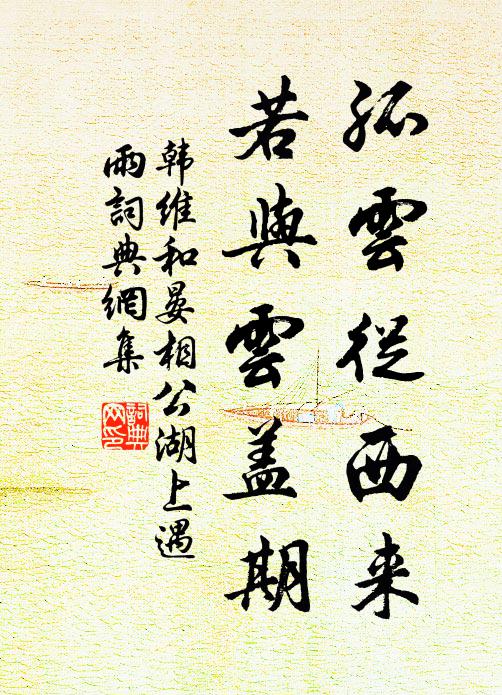 孤雲從西来
若與雲盖期
韩维和晏相公湖上遇
雨詞典網集
詞典
网印